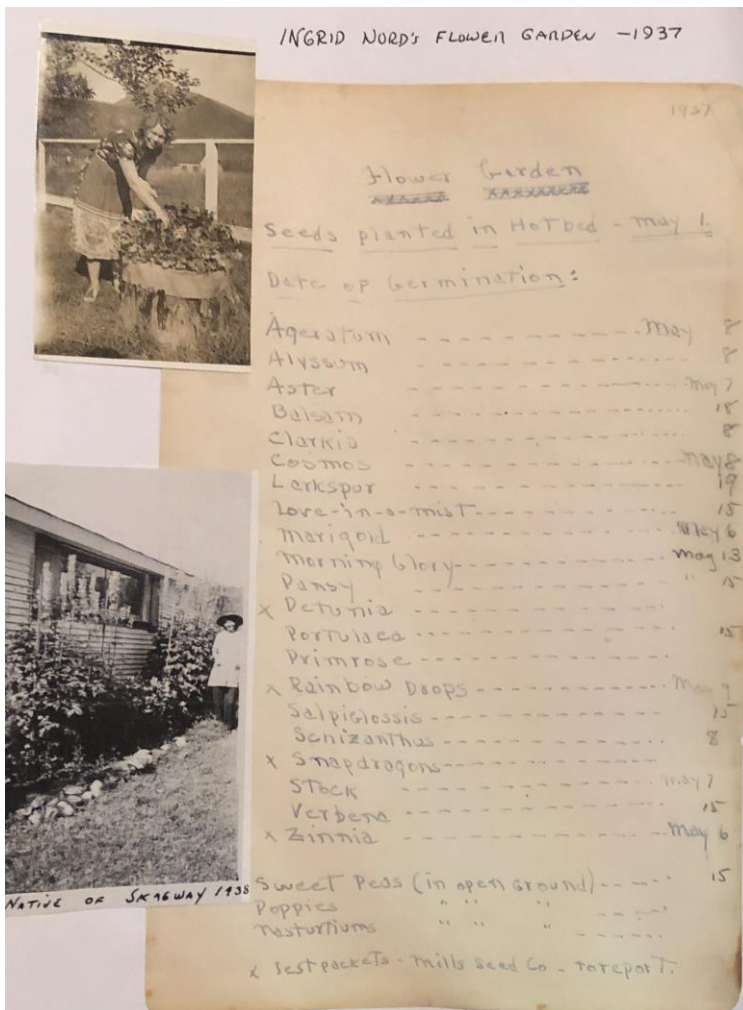 INGRID NORD'S FLOWER GARDEN - 1937
1937
Flower Garden
Seeds planted in Hotbed - May 1.
Date of Germination:
Ageratum - - - - - - - - - - May 8
Alyssum - - - - - - - - - - 8
Aster - - - - - - - - - - May 7
Balsam - - - - - - - - - - 18
Clarkia - - - - - - - - - - 8
Cosmos - - - - - - - - - - May 8
Larkspur - - - - - - - - - - 19
Love-in-a-mist - - - - - - - - - - 15
Marigold - - - - - - - - - - May 6
Morning Glory - - - - - - - - - - May 13
Pansy - - - - - - - - - - " 15
x Petunia - - - - - - - - - -
Portulaca - - - - - - - - - - 15
Primrose - - - - - - - - - -
x Rainbow Drops - - - - - - - - - - May 9
Salpiglossis - - - - - - - - - - 15
Schizanthus - - - - - - - - - - 8
x Snapdragons - - - - - - - - - -
Stock - - - - - - - - - - May 7
Verbena - - - - - - - - - - 15
x Zinnia - - - - - - - - - - May 6
Sweet Peas (in open ground) - - - - - 15
Poppies " " " - - - - -
Nasturtiums " " " - - - - -
x Test packets - Mills Seed Co - to report.
NATIVE OF SKAGWAY 1938